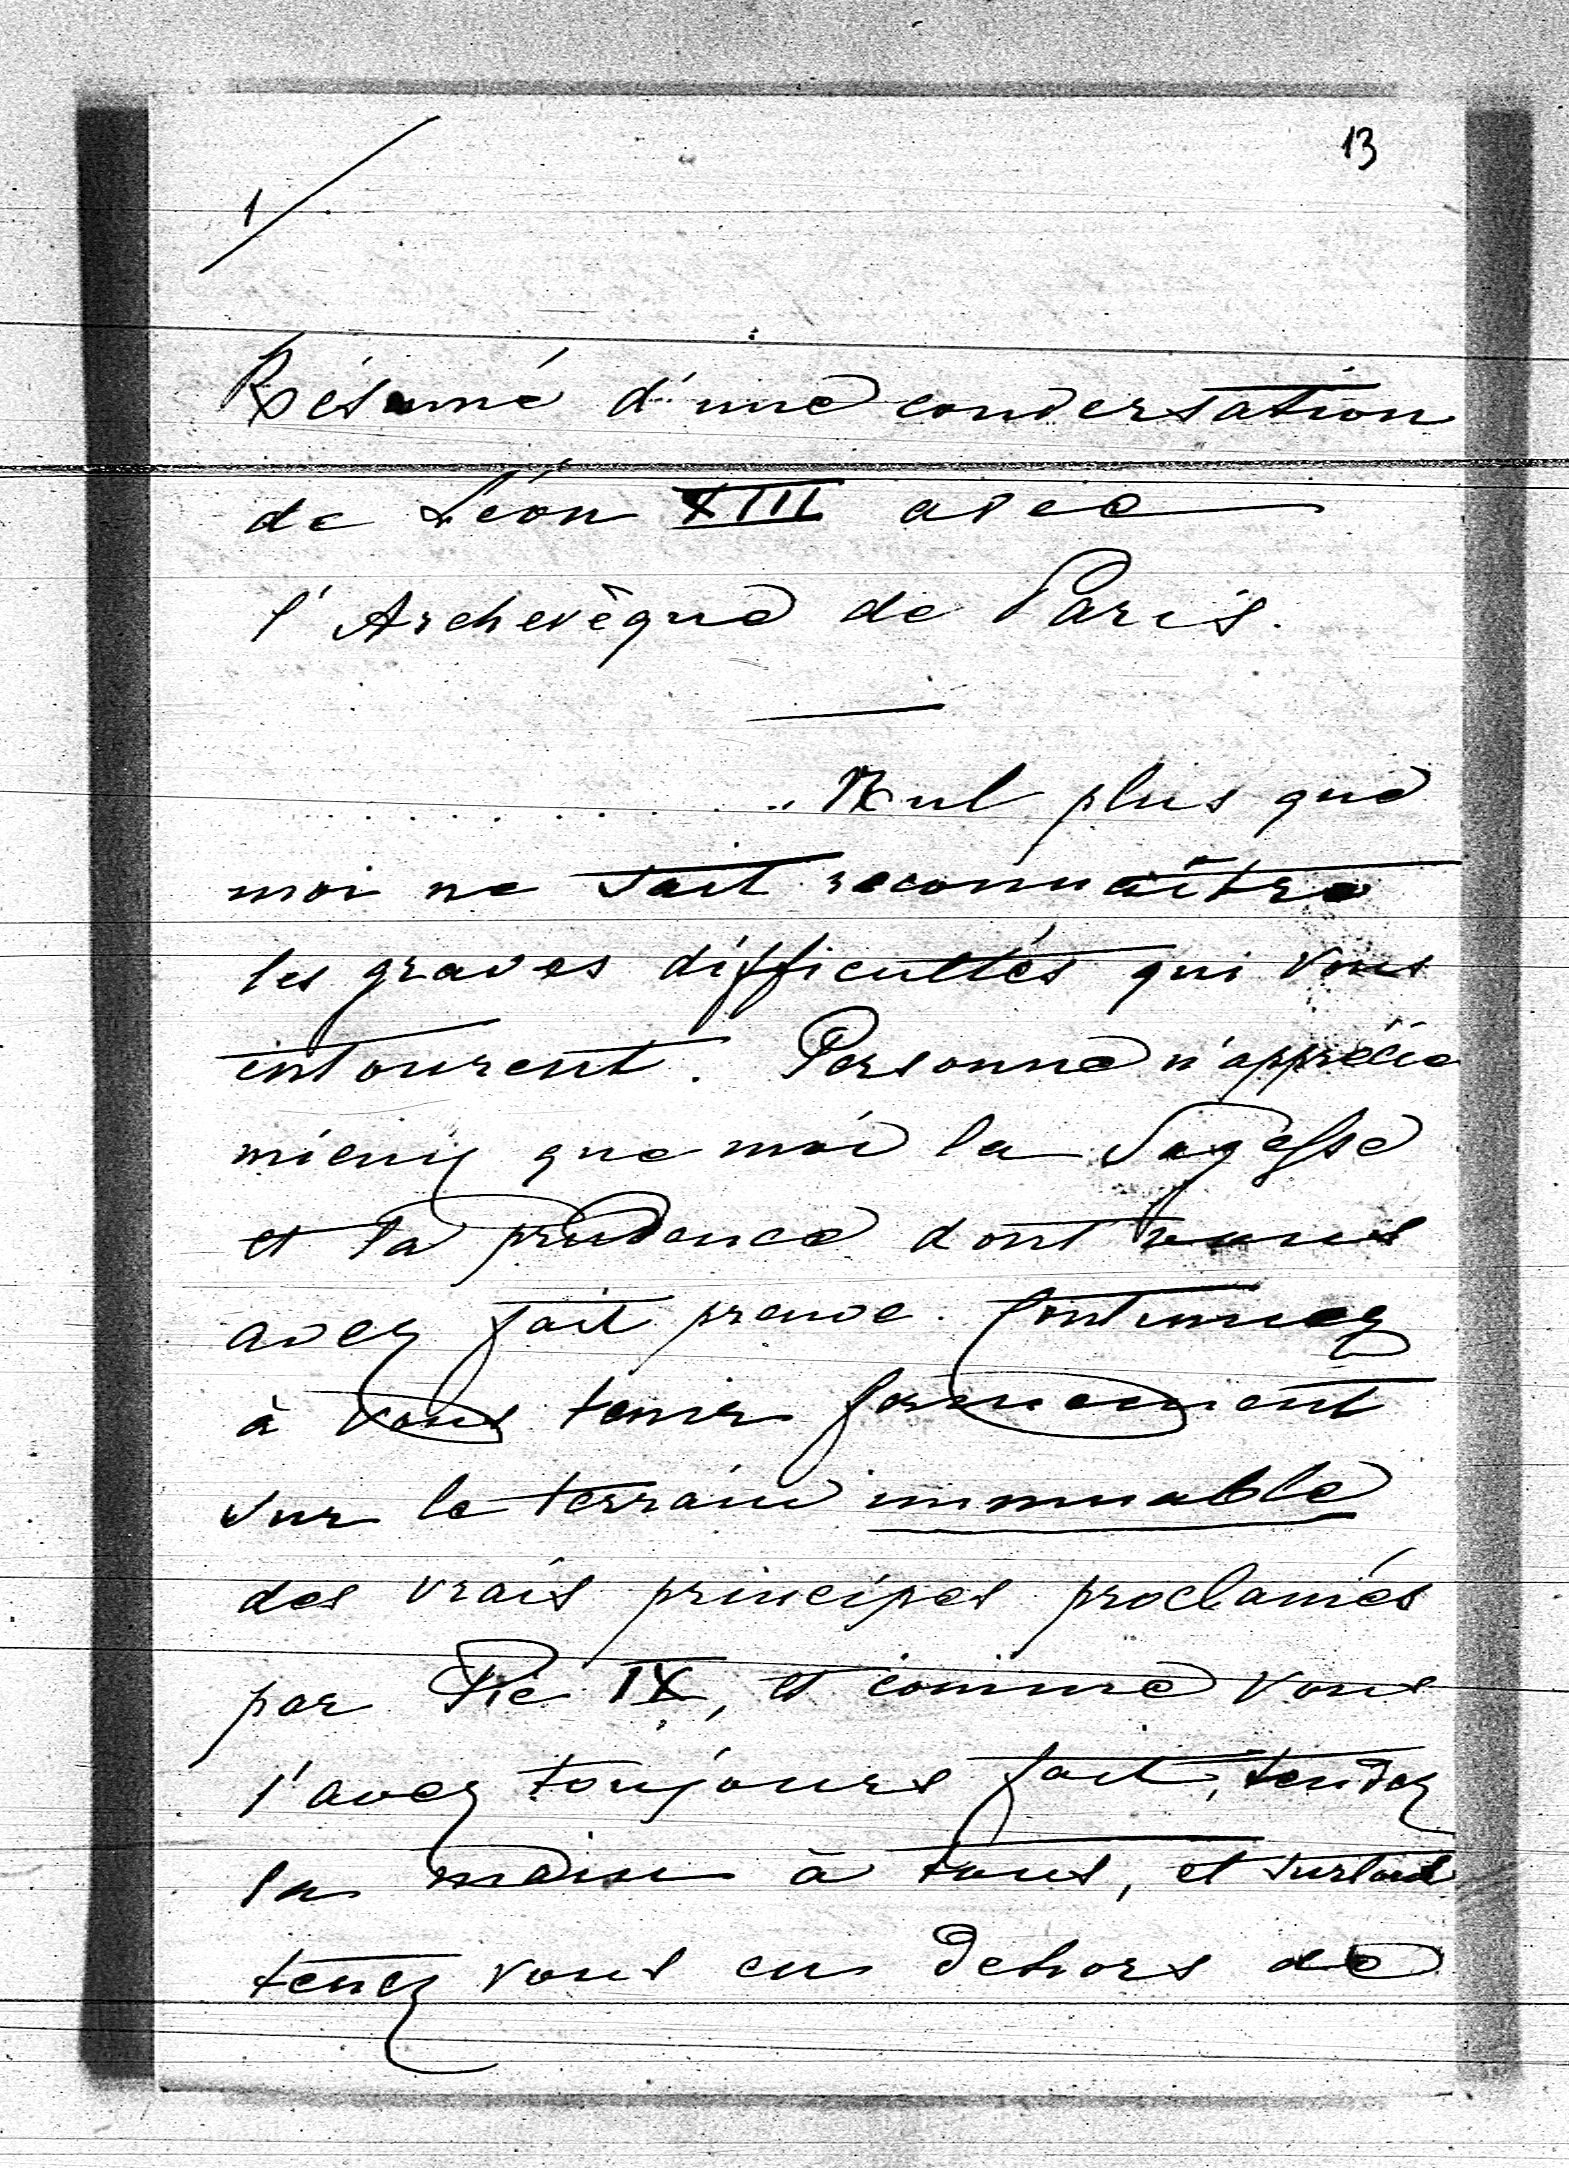 13
1/
Résumé d'une conversation
de Léon XIII avec
l'Archevêque de Paris.
. . . . . . . . . . „ Nul plus que
moi ne sait reconnaître
les graves difficultés qui vous
entourent. Personne n'apprécie
mieux que moi la sagesse
et la prudence dont vous
avez fait preuve. Continuez
à vous tenir fermement
sur le terrain immuable
des vrais principes proclamés
par Pie IX, et comme vous
l'avez toujours fait, tendez
la main à tous, et surtout
tenez vous en dehors de